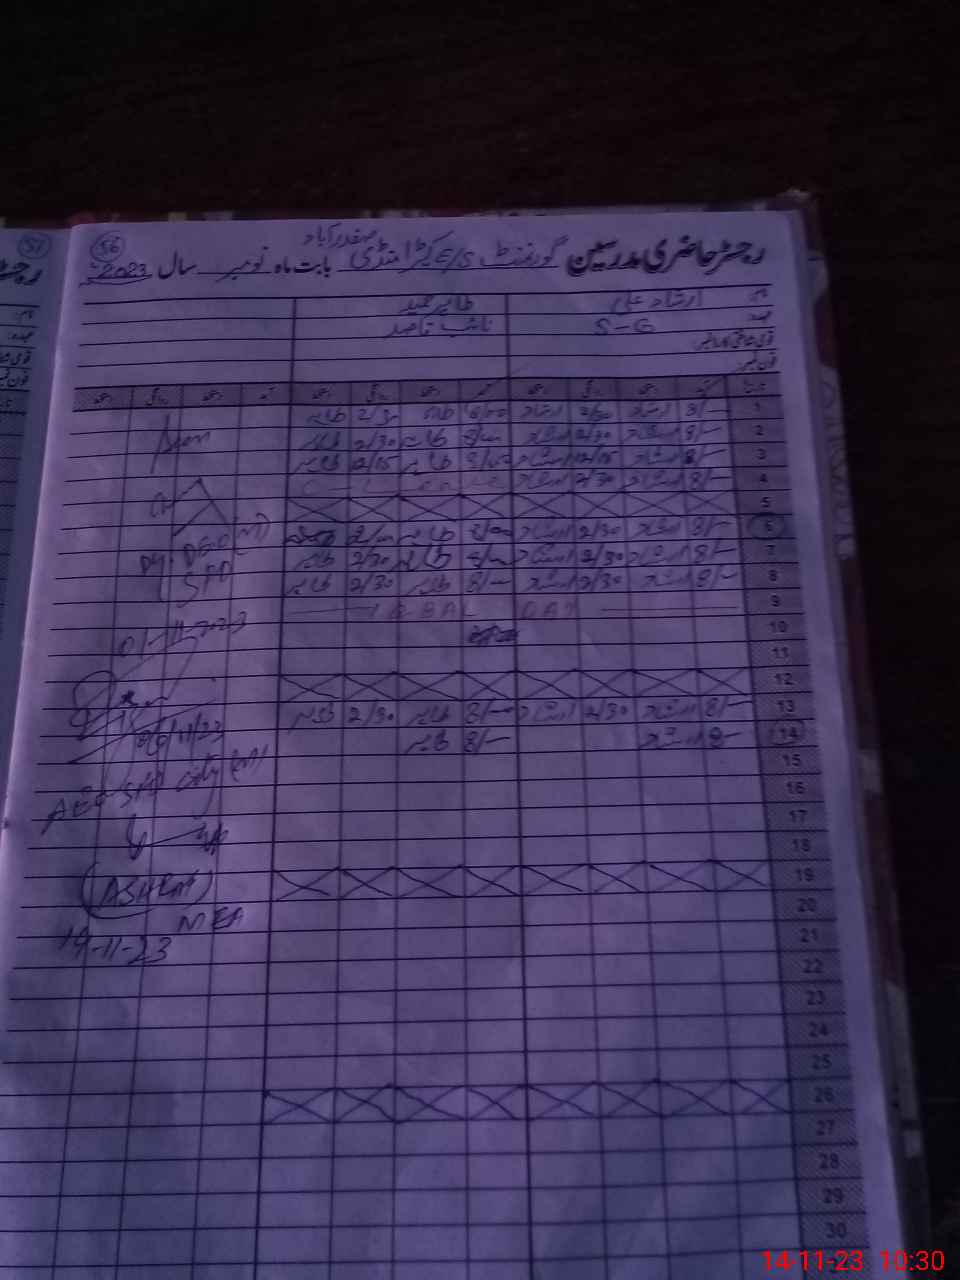 56
57
صفدرآباد
رجسٹر حاضری مدرسین گورنمنٹ E/S کپڑا منڈی بابت ماہ نومبر سال 2023
نام: ارشاد علی طاہر حمید
عہدہ: S-G نائب قاصد
قومی شناختی کارڈ نمبر:
فون نمبر:
1 8/- ارشاد 2/30 ارشاد 8/00 طاہر 2/30 طاہر
2 8/- ارشاد 2/30 ارشاد 8/00 طاہر 2/30 طاہر
3 8/- ارشاد 12/15 ارشاد 8/00 طاہر 12/15 طاہر
4 8/- ارشاد 2/30 ارشاد
5
6 8/- ارشاد 2/30 ارشاد 8/00 طاہر
7 8/- ارشاد 2/30 ارشاد 8/00 طاہر 2/30 طاہر
8 8/- ارشاد 2/30 ارشاد 8/- طاہر 2/30 طاہر
9 IQBAL DAY
10
11
12
13 8/- ارشاد 2/30 ارشاد 8/- طاہر 2/30 طاہر
14 8/- ارشاد 8/- طاہر
15
16
17
18
19
20
21
22
23
24
25
26
27
28
29
30
Dy. DEO (M)
SPD
01-11-2023
06/11/23
AEO SPD City (M)
(ASHRAF)
MEA
14-11-23
14-11-23 10:30